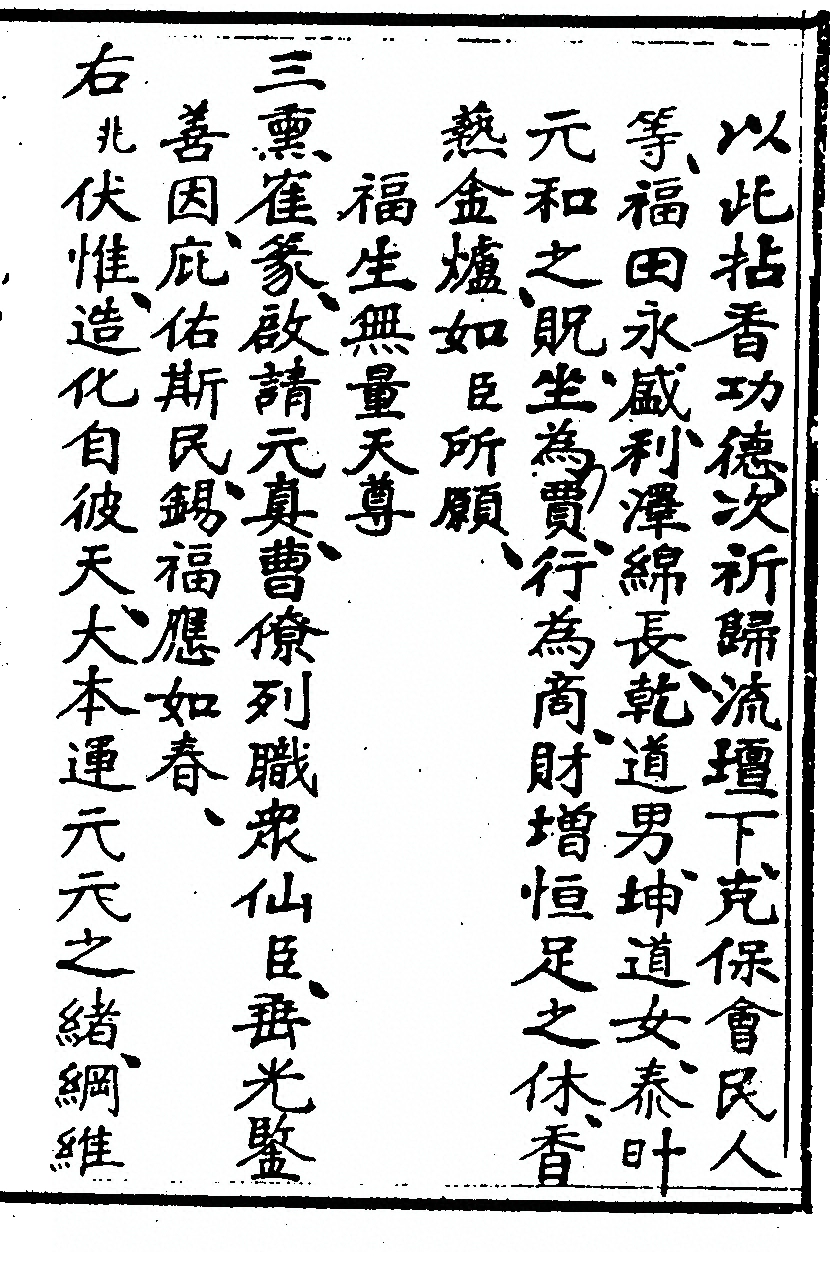 以此拈香功德次祈歸流壇下克保會民人
等福田永盛利澤綿長乾道男坤道女泰叶
元和之貺坐為賈行為商財增恒足之休香
爇金爐如臣所願
福生無量天尊
三熏雀篆啟請元真曹僚列職眾仙臣垂光鑒
善因庇佑斯民錫福應如春
右兆伏惟造化自彼天大本運元元之緒綱維